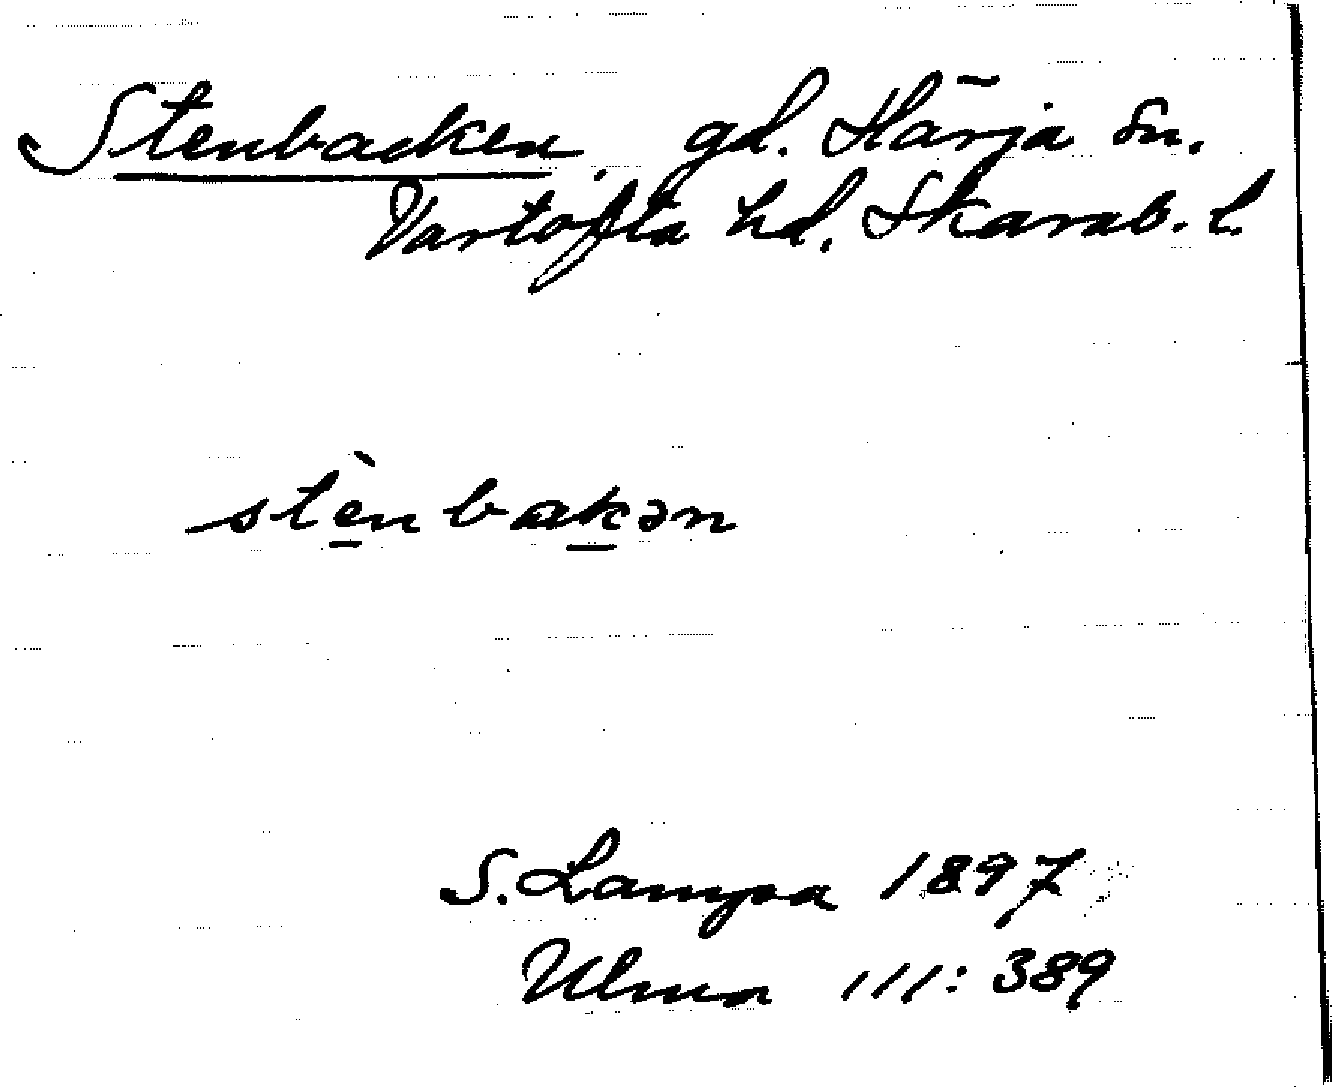 Stenbacken. gd. Härja sn.
Vartofta hd. Skarab. l.
stènbakən
S. Lampa 1897
Ulma 111:389